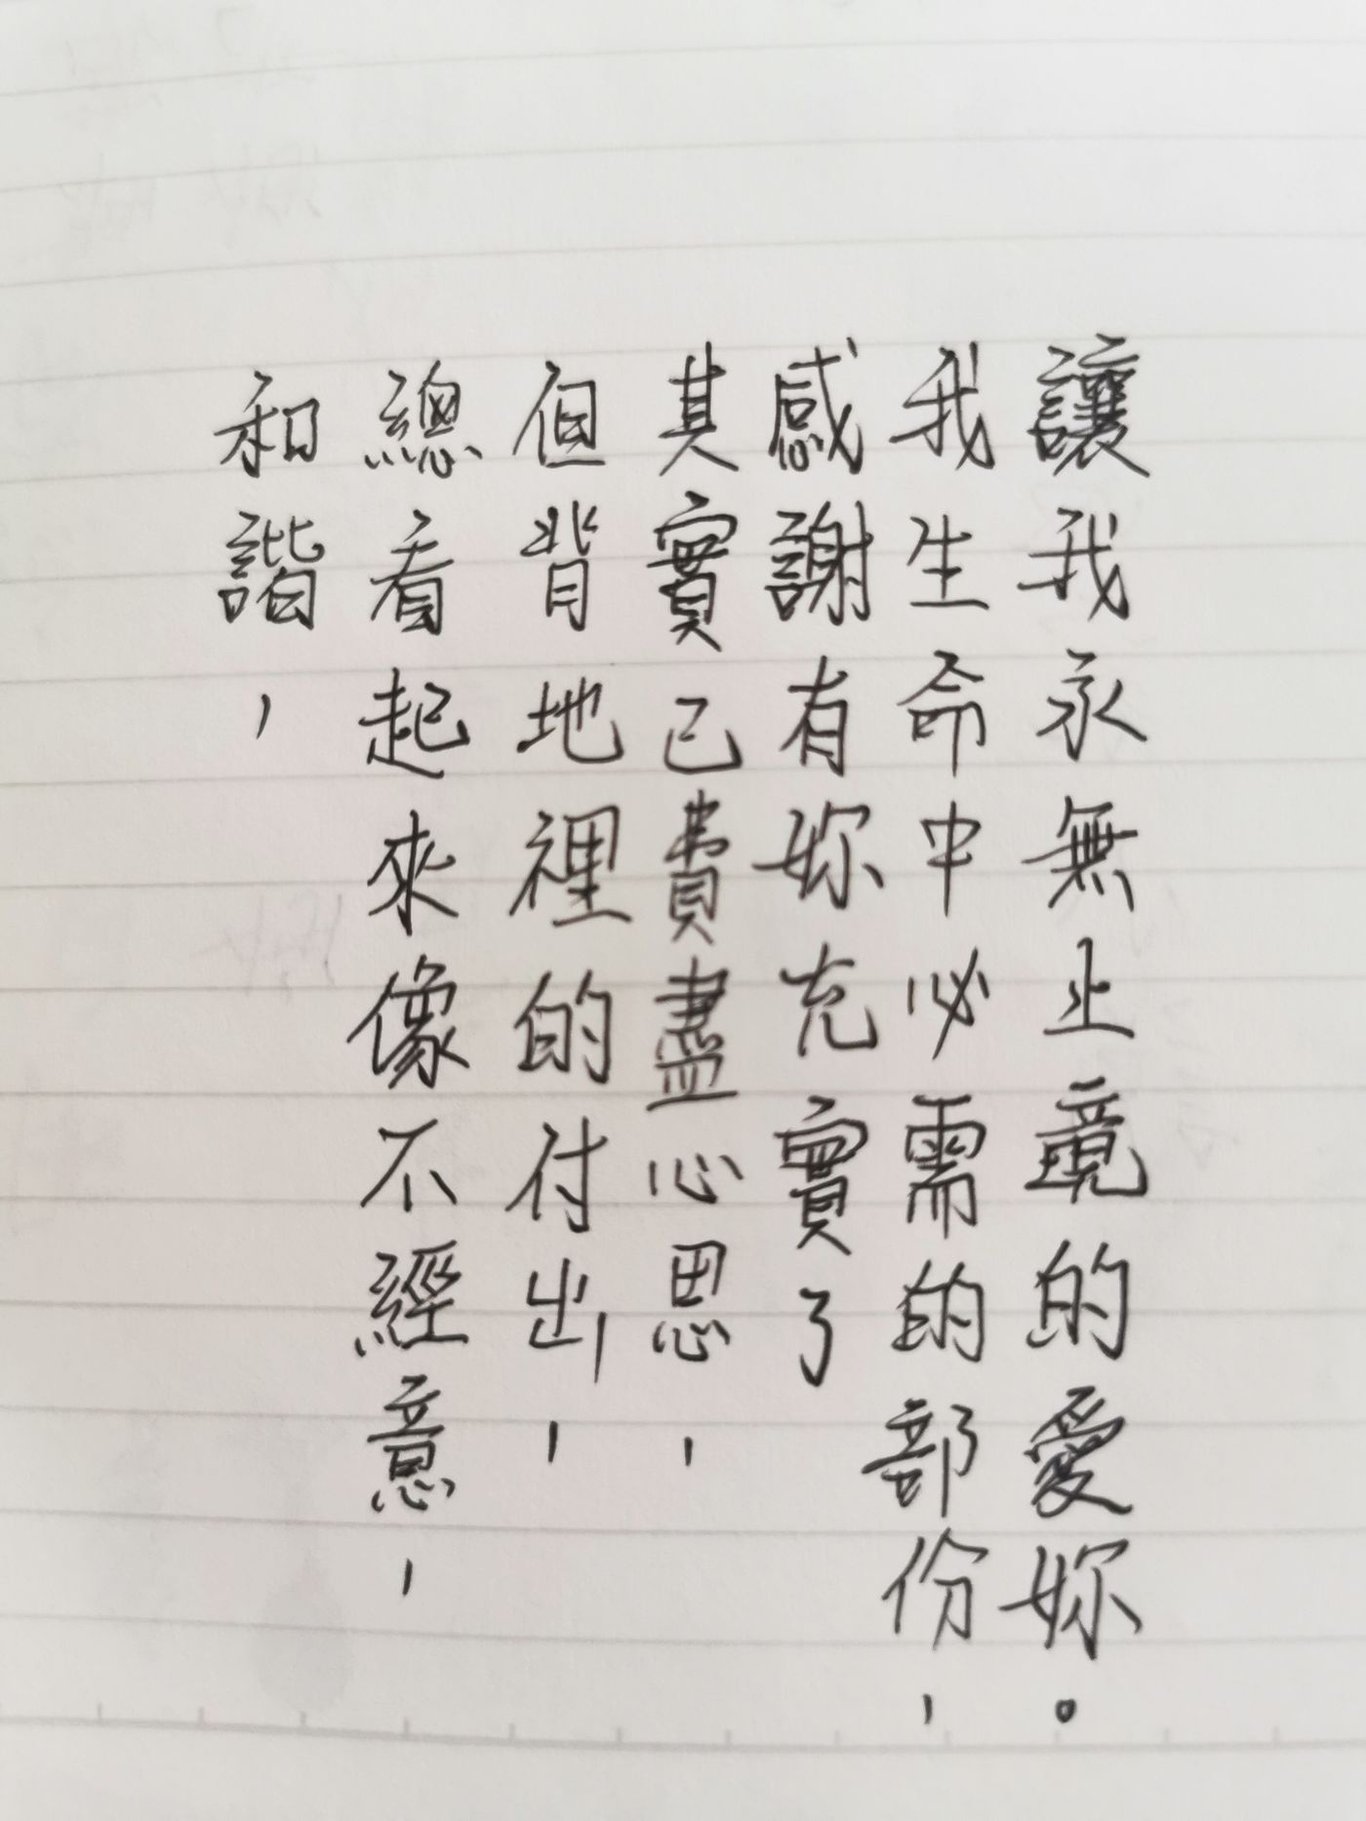 和諧，
總看起來像不經意，
但背地裡的付出，
其實已費盡心思，
感謝有妳充實了
我生命中必需的部份，
讓我永無止境的愛妳。